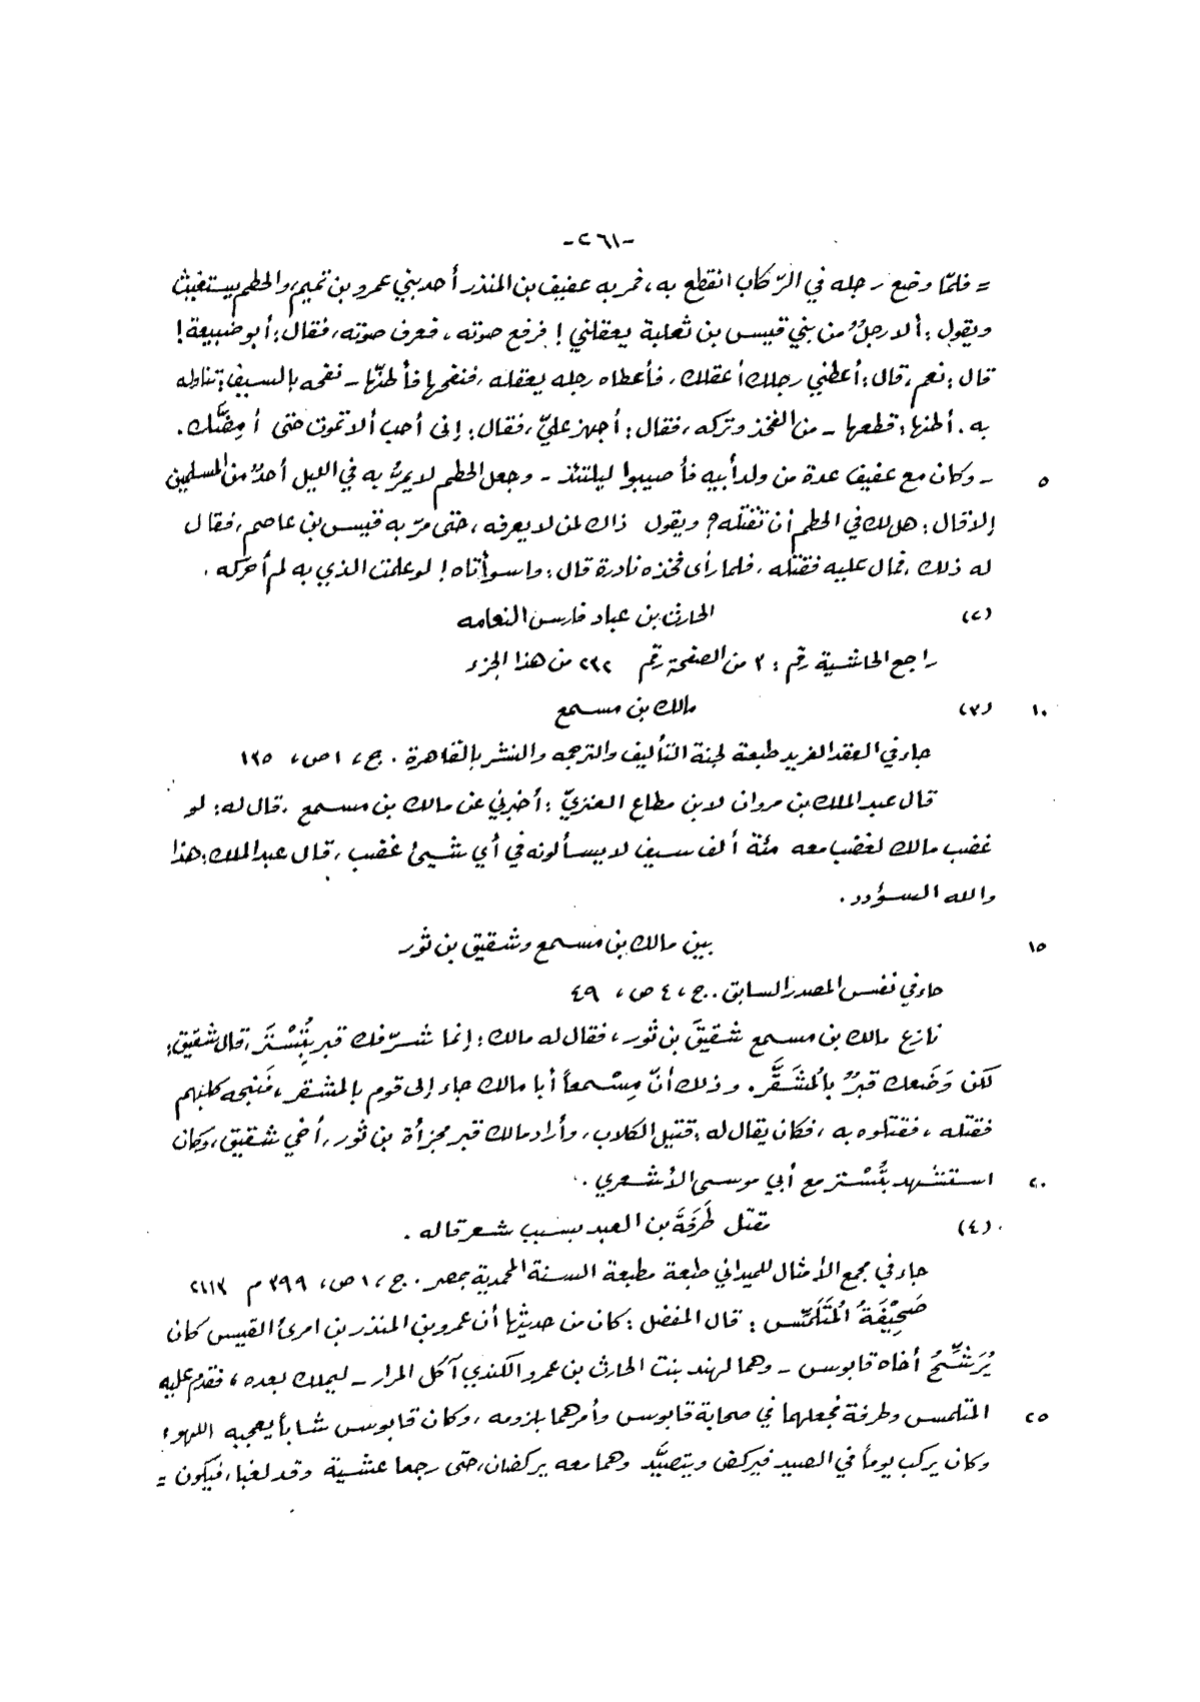 -٢٦١-
= فلمّا وضع رجله في الرّكاب انقطع به، فمر به عفيف بن المنذر أحد بني عمرو بن تميم، والحطم يستغيث
ويقول: ألا رجلٌ من بني قيس بن ثعلبة يعقلني! فرفع صوته، فعرف صوته، فقال: أبو ضبيعة!
قال: نعم، قال: أعطني رجلك أعقلك، فأعطاه رجله يعقله، فنفحها فأطنّها - نفحه بالسيف: تناوله
به. أطنها: قطعها - من الفخذ وتركه، فقال: أجهز عليّ، فقال: إني أحب ألا تموت حتى أُمِضَّك.
٥ - وكان مع عفيف عدة من ولد أبيه فأصيبوا ليلتئذ - وجعل الحطم لا يمرُّ به في الليل أحدٌ من المسلمين
إلا قال: هل لك في الحطم أن تقتله؟ ويقول ذاك لمن لا يعرفه، حتى مرّ به قيس بن عاصم، فقال
له ذلك، فمال عليه فقتله، فلما رأى فخذه نادرة قال: واسوأتاه! لو علمت الذي به لم أحرّكه.
(٢) الحارث بن عباد فارس النعامه
راجع الحاشية رقم: ٣ من الصفحة رقم ٢٣٢ من هذا الجزء
١٠ (٣) مالك بن مسمع
جاء في العقد الفريد طبعة لجنة التأليف والترجمه والنشر بالقاهرة. ج، ١ ص، ١٣٥
قال عبد الملك بن مروان لابن مطاع العنزيّ: أخبرني عن مالك بن مسمع، قال له: لو
غضب مالك لغضب معه مئة ألف سيف لا يسألونه في أي شيئ غضب، قال عبد الملك: هذا
والله السؤدد.
١٥ بين مالك بن مسمع وشقيق بن ثور
جاء في نفس المصدر السابق.. ج، ٤ ص، ٤٩
نازع مالك بن مسمع شقيقَ بن ثور، فقال له مالك: إنما شرّفك قبر بتُسْتَر، قال شقيق:
لكن وَضَعك قبرٌ بالُمشَقَّر. وذلك أنّ مِسْمعاً أبا مالك جاء إلى قوم بالمشقر، فَنبحه كلبهم
فقتله، فقتلوه به، فكان يقال له: قتيل الكلاب، وأراد مالك قبر مجزأة بن ثور، أخي شقيق، وكان
٢٠ استشهد بتُسْتر مع أبي موسى الأشعري.
(٤) مقتل طَرَفَةَ بن العبد بسبب شعر قاله.
جاء في مجمع الأمثال للميداني طبعة مطبعة السنة المحمدية بمصر. ج، ١ ص، ٣٩٩ م ٢١١٣
صَحِيْفَةُ الُمتَلَمِّس: قال المفضل: كان من حديثها أن عمرو بن المنذر بن امرئ القيس كان
يُرَشِّحُ أخاه قابوس - وهما لهند بنت الحارث بن عمرو الكندي آكل المرار - ليملك بعده، فقدم عليه
٢٥ المتلمس وطرفة فجعلهما في صحابة قابوس وأمرهما بلزومه، وكان قابوس شاباً يعجبه اللهو،
وكان يركب يوماً في الصيد فيركض ويتصيَّد وهما معه يركضان، حتى رجعا عشية وقد لغبا، فيكون =